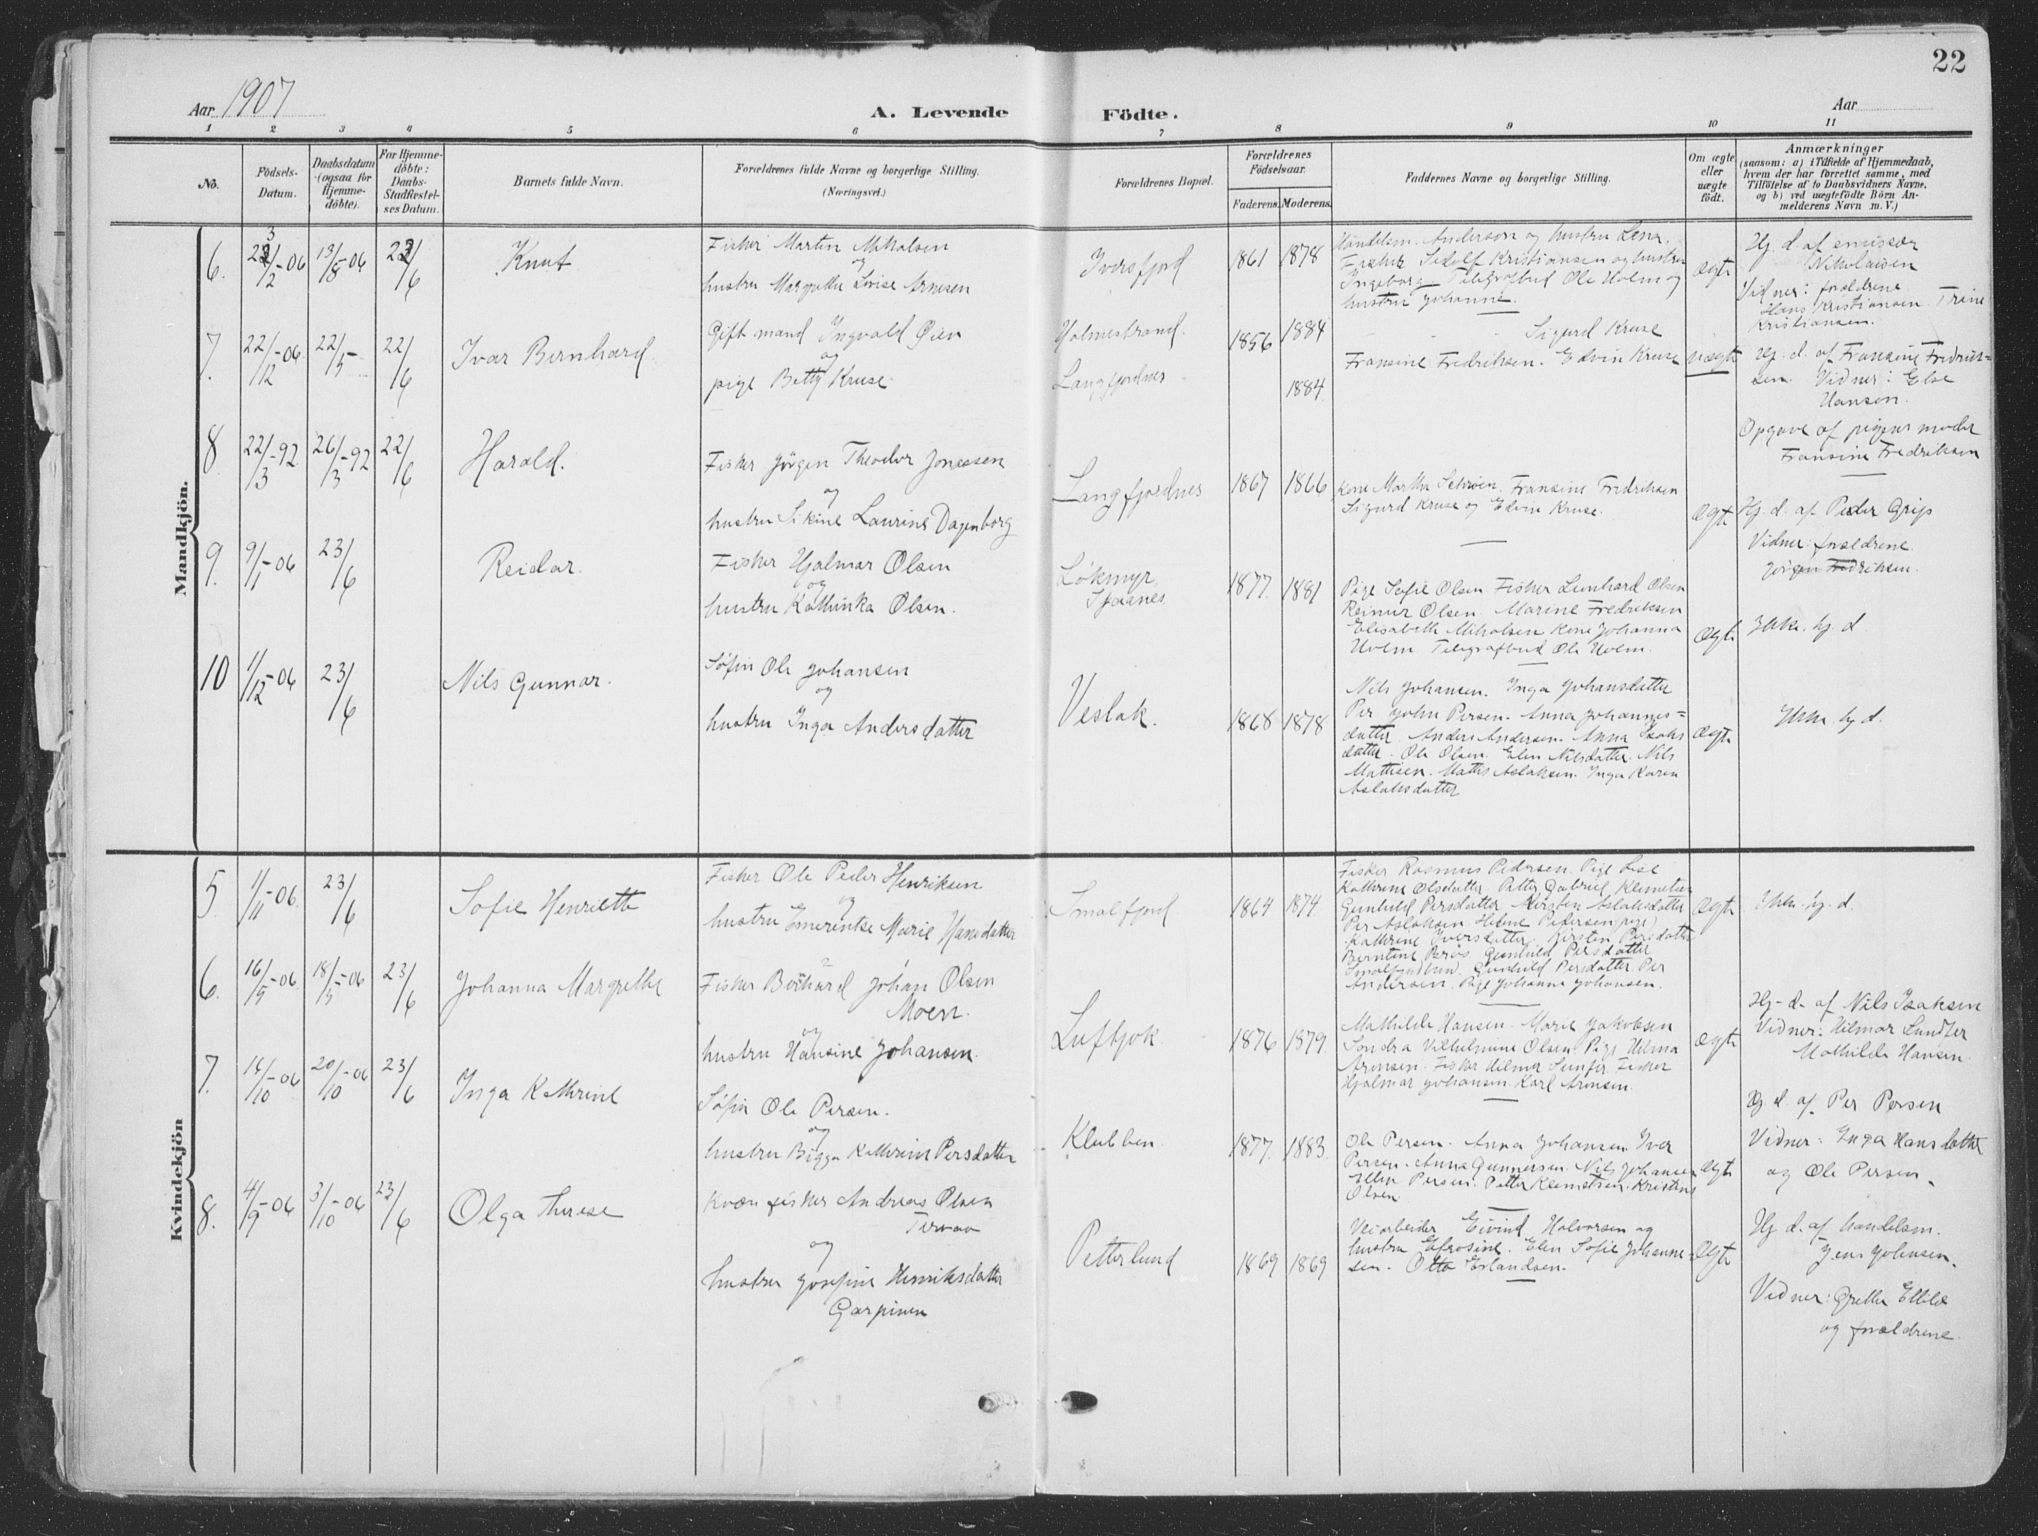 22
Aar 1907
A. Levende
Födte.
Aar
1 2 3 4 5 6 7 8 9 10 11
No.
Födsels-
Datum.
Daabsdatum
(ogsaa for
Hjemme-
döbte).
For Hjemme-
döbte:
Daabs-
Stadfæstel-
ses Datum.
Barnets fulde Navn.
Forældrenes fulde Navne og borgerlige Stilling.
(Næringsvei.)
Forældrenes Bopæl.
Forældrenes
Födselsaar.
Faderens. Moderens.
Faddernes Navne og borgerlige Stilling.
Om ægte
eller
uægte
født.
Anmærkninger
(saasom: a) i Tilfælde af Hjemmedaab,
hvem der har forrettet samme, med
Tilföielse af to Daabsvidners Navne,
og b) ved uægtefödte Börn An-
melderens Navn m. V.)
Mandkjön.
6. 23/12-06 13/5-06 23/6
Knut
Fisker Martin Mikalsen
og
hustru Margrethe Lovise Arnesen
Iversfjord
1861 1878
Handelsm. Anderson og hustru Lena.
Fisker Sidolf Kristiansen og hustru
Ingeborg. Telegrafbud Ole Holm og
hustru Johanne.
ægte
Hj. d. af emissær
Nikolaisen
Vidner: forældrene
Hans Kristiansen. Trine
Kristiansen.
7. 22/12-06 22/5- 22/6
Ivar Bernhard.
Gift mand Ingvald Øien
og
pige Betty Kruse
Holmestrand.
Langfjordnes
1856 1884
1884
Sigurd Kruse
Fransine Fredriksen. Edvin Kruse
uægte
Hj. d. af Fransine Fredrik-
sen. Vidner: Else
Hansen.
Opgave af pigens moder
Fransine Fredriksen
8 22/3-92 26/3-92 22/6
Harald.
Fisker Jørgen Theodor Jonassen
og
hustru Sikine Laurine Dagenborg
Langfjordnes
1867 1866
Kone Martha Schrøen. Fransine Fredriksen
Sigurd Kruse og Edvin Kruse.
ægte
Hj. d. af Peder Grip
Vidner: forældrene.
Jørgen Fredriksen.
9. 9/1-06 23/6
Reidar.
Fisker Hjalmar Olsen
og
hustru Kathinka Olsen.
Løkmyr,
1877. 1881
Pige Sofie Olsen. Fisker Lenhard Olsen
Reinert Olsen. Marine Fredriksen
Elisabeth Mikalsen Kone Johanna
Holm Telegrafbud Ole Holm.
ægte
Ikke hj. d
10 1/12-06 23/6
Nils Gunnar.
Søfin Ole Johansen
og
hustru Inga Andersdatter
Veslak.
1868 1878
Nils Johansen. Inga Johansdatter
Per John Persen. Anna Johannes-
datter. Anders Andersen. Anna Isaks
datter. Ole Olsen. Elen Nilsdatter. Nils
Mathisen. Mattis Aslaksen. Inga Karen
Aslaksdatter
ægte
Ikke hj. d.
Kvindekjön
5. 1/11-06. 23/6
Sofie Henriette
Fisker Ole Peder Henriksen
og
hustru Emerentse Marie Hansdatter
Smalfjord
1864 1874
Fisker Rasmus Pedersen. Pige Lise
Kathrine Olsdatter. Petter Gabriel Klemetsen
Gunhild Persdatter. Kirsten Aslaksdatter
Per Aslaksen Helene Pedersen (pige)
Kathrine Iversdatter. Kirsten Persdatter
Berntine Brås Gunhild Persdatter
Gunhild Persdatter. Per
Andersen. Pige Johanna Johansen.
ægte
Ikke hj. d.
6. 16/5-06 18/5-06 23/6
Johanna Margrethe
Fisker Johan Olsen
Moen.
og
hustru Hansine Johansen.
Luftjok.
1876 1879.
Mathilde Hansen. Marie Jakobsen
Sandra Vilhelmine Olsen. Pige Hilma
Aronsen. Fisker Hilmar Lunfer Fisker
Hjalmar Johansen. Karl Aronsen.
ægte
Hj. d. af Nils Isaksen
Vidner: Hilmar Lundfer
Mathilde Hansen.
7. 16/10-06 20/10-06 23/6
Inga Kathrine
Søfin Ole Persen.
og
hustru Bigga Kathrine Persdatter
Klubben.
1877. 1883.
Ole Persen. Anna Johansen Iver
Persen. Anna Gunnersen. Nils Johansen
Ellen Persen. Petter Klemetsen. Kristine
Olsen.
ægte
Hj. d. af Per Persen
Vidner: Inga Hansdatter
og Ole Persen.
8. 4/9-06 3/10-06 23/6
Olga Therese
Kvæn fisker Andreas Olsen
Tervao
og
hustru Josefine Henriksdatter
Garpinen
Petterlund
1869 1869
Veiarbeider Eivind Halvorsen og
hustru Efrosine. Elen Sofie Johanne-
sen. Otto Erlandsen.
ægte
Hj. d. af handelsm.
Jens Johansen.
Vidner: Grethe
og forældrene.